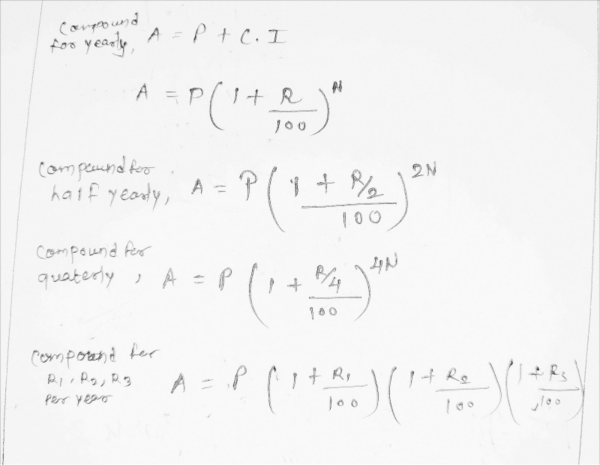 Compound
for yearly, A = P + C.I
A = P(1 + R/100)^N
Compound for
half yearly, A = P(1 + R/2/100)^2N
Compound for
quaterly, A = P(1 + R/4/100)^4N
Compound for
R1, R2, R3
per year A = P(1 + R1/100)(1 + R2/100)(1 + R3/100)